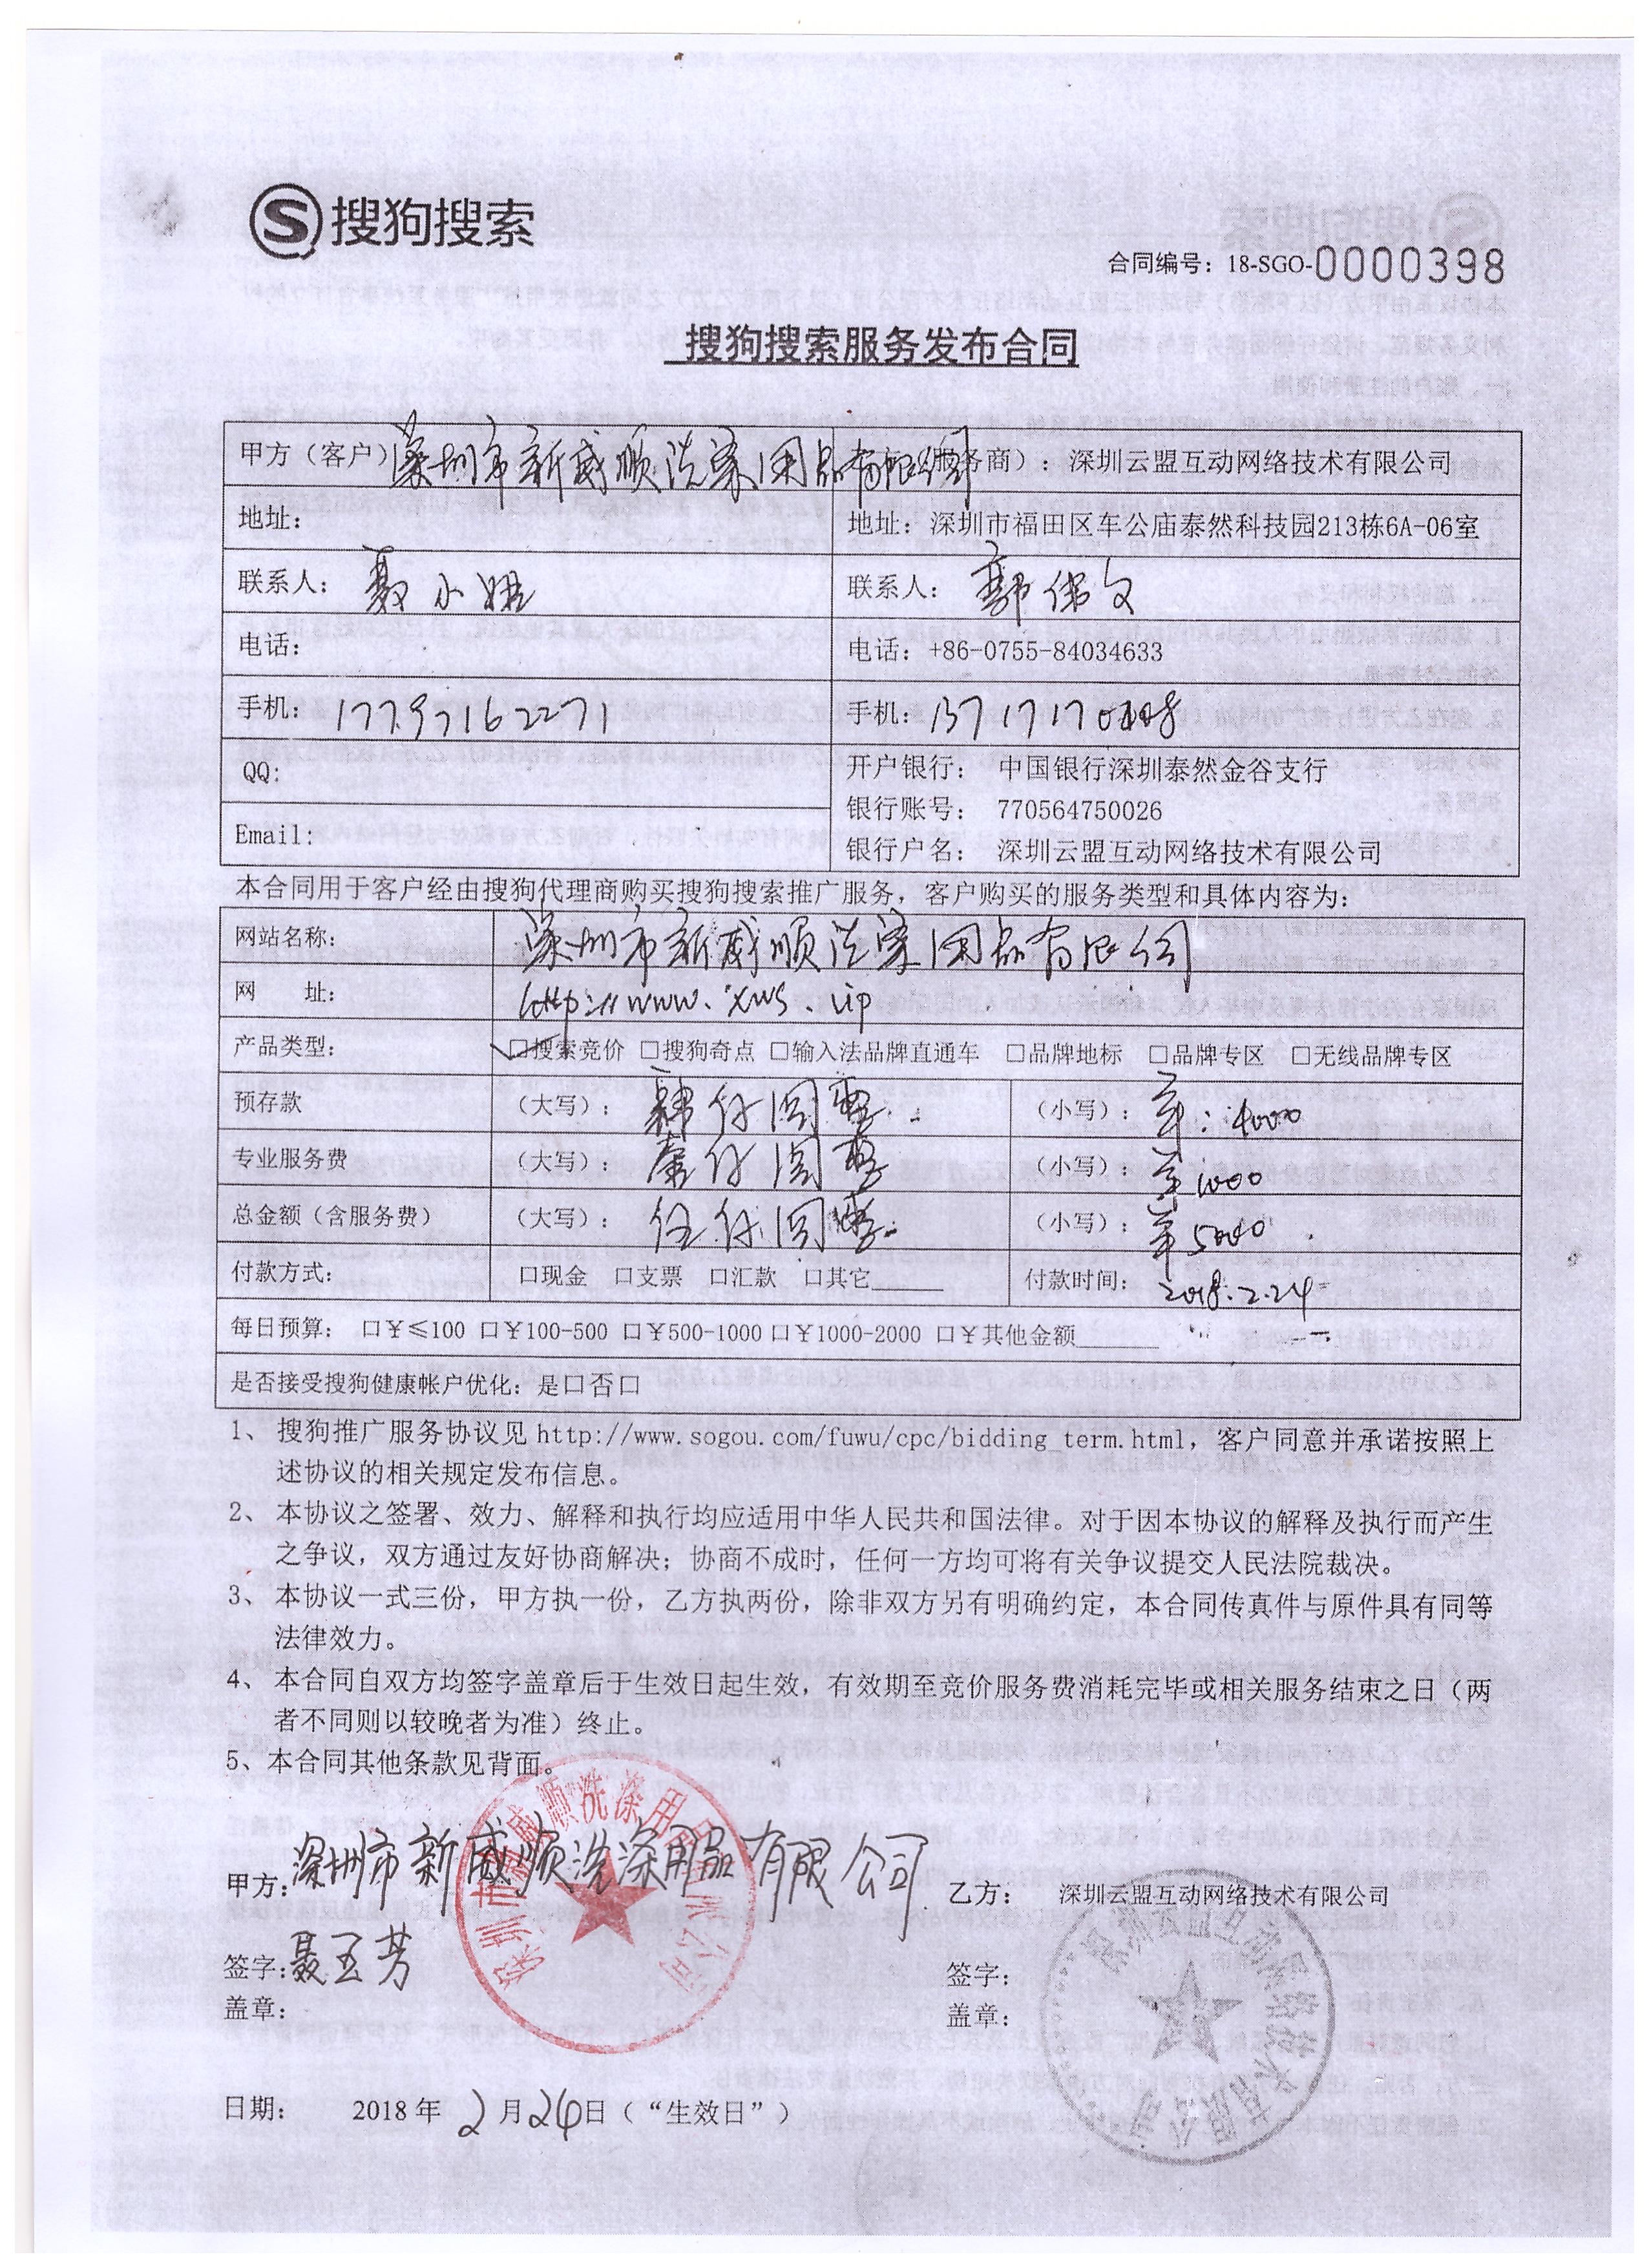 搜狗搜索
合同编号：18-SGO-0000398
搜狗搜索服务发布合同
甲方（客户）深圳市新威顺洗涤用品有限公司 务商）：深圳云盟互动网络技术有限公司
地址： 地址：深圳市福田区车公庙泰然科技园213栋6A-06室
联系人：聂小姐 联系人：郭伟文
电话： 电话：+86-0755-84034633
手机：17797162271 手机：
QQ: 开户银行： 中国银行深圳泰然金谷支行
银行账号： 770564750026
Email: 银行户名： 深圳云盟互动网络技术有限公司
本合同用于客户经由搜狗代理商购买搜狗搜索推广服务，客户购买的服务类型和具体内容为：
网站名称： 深圳市新威顺洗涤用品有限公司
网 址： http://www.xws.vip
产品类型： ☑搜索竞价 □搜狗奇点 □输入法品牌直通车 □品牌地标 □品牌专区 □无线品牌专区
预存款 （大写）：肆仟圆整 （小写）：¥：4000
专业服务费 （大写）：壹仟圆整 （小写）：¥1000
总金额（含服务费） （大写）：伍仟圆整 （小写）：¥5000
付款方式： □现金 □支票 □汇款 □其它_____ 付款时间：2018.2.24
每日预算： □¥≤100 □¥100-500 □¥500-1000 □¥1000-2000 □¥其他金额______
是否接受搜狗健康帐户优化：是□否□
1、 搜狗推广服务协议见 http://www.sogou.com/fuwu/cpc/bidding_term.html，客户同意并承诺按照上
述协议的相关规定发布信息。
2、 本协议之签署、效力、解释和执行均应适用中华人民共和国法律。对于因本协议的解释及执行而产生
之争议，双方通过友好协商解决；协商不成时，任何一方均可将有关争议提交人民法院裁决。
3、 本协议一式三份，甲方执一份，乙方执两份，除非双方另有明确约定，本合同传真件与原件具有同等
法律效力。
4、 本合同自双方均签字盖章后于生效日起生效，有效期至竞价服务费消耗完毕或相关服务结束之日（两
者不同则以较晚者为准）终止。
5、本合同其他条款见背面。
甲方：深圳市新威顺洗涤用品有限公司 乙方： 深圳云盟互动网络技术有限公司
深圳市新威顺洗涤用品有限公司
签字：聂玉芳 签字：
盖章： 盖章：
深圳云盟互动网络技术有限公司
日期： 2018 年 2 月 24 日（“生效日”）